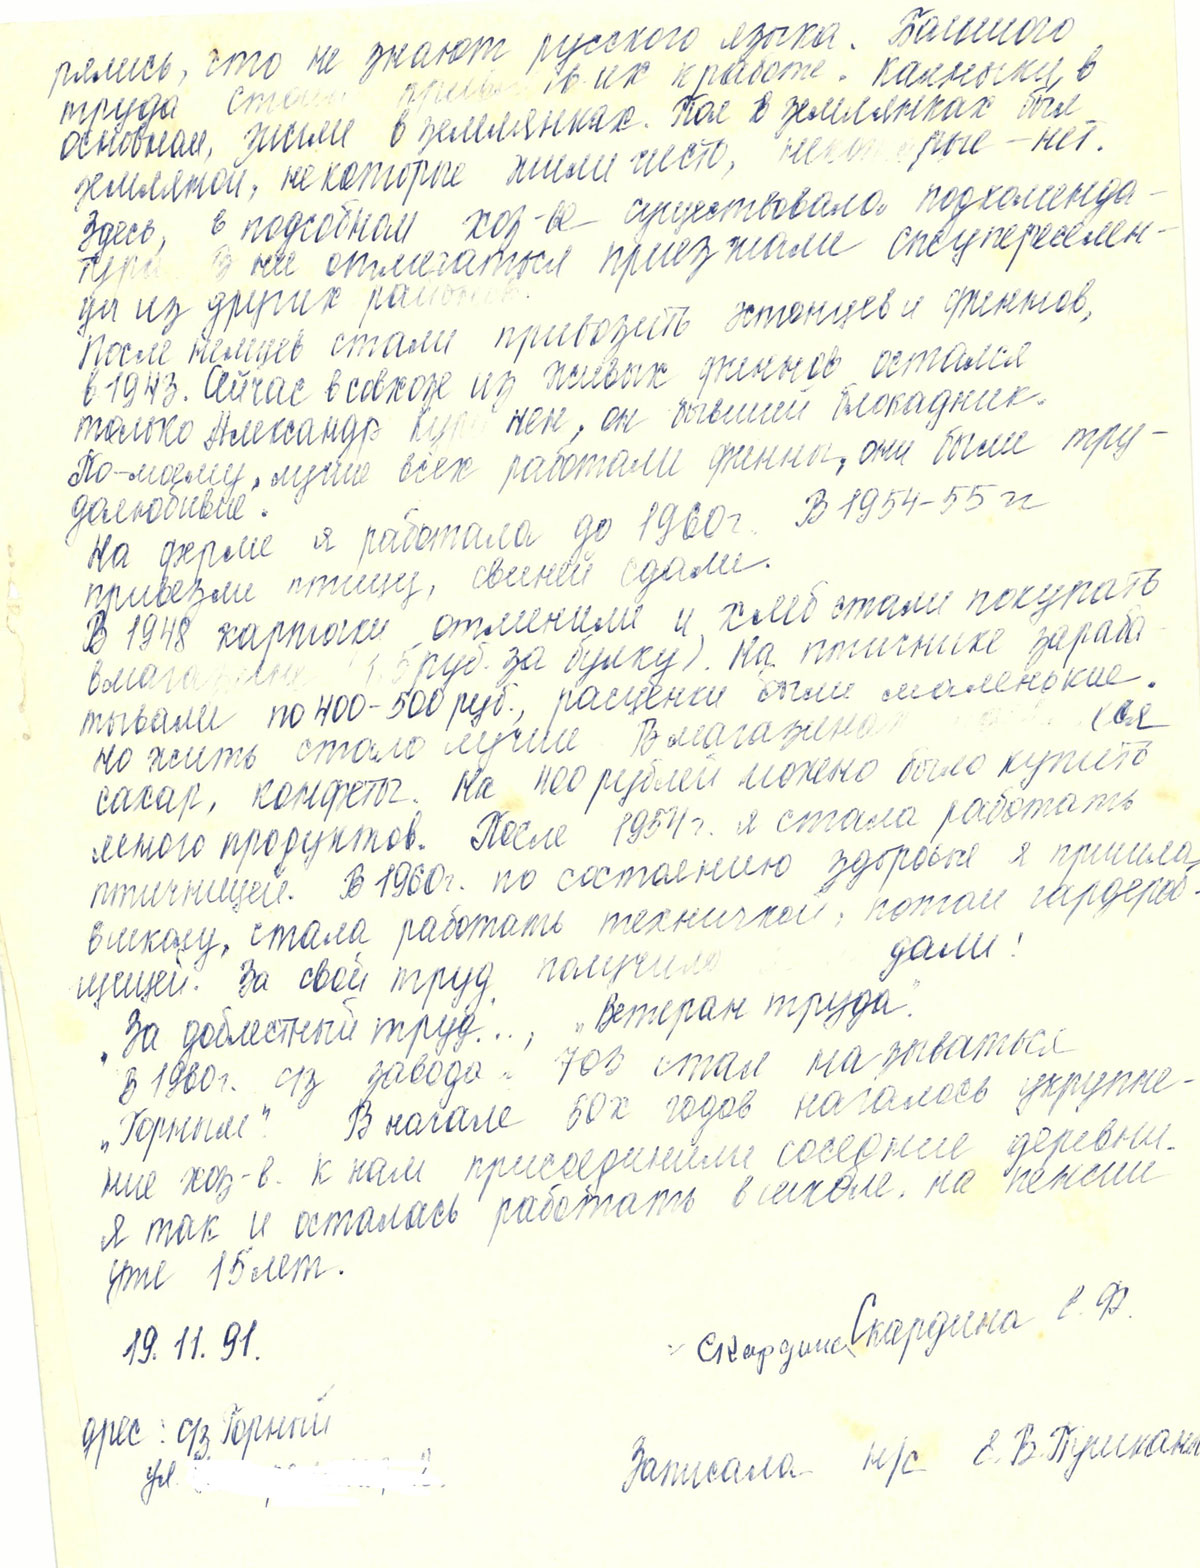 рялись, что не знают русского языка. Большого
труда стоило их к работе. Калмыки, в
основном, жили в землянках. Пол в землянках был
земляной, некоторые жили чисто, некоторые – нет.
Здесь, в подсобном хоз-ве существовала подкоменда-
тура. В неё отмечаться приезжали спецпереселен-
цы из других районов.
После немцев стали привозить эстонцев и финнов,
в 1943. Сейчас в совхозе из живых финнов остался
только Александр он бывший блокадник.
По-моему, лучше всех работали финны, они были тру-
долюбивые.
На ферме я работала до 1960г. В 1954-55 гг
привезли птицу, свиней сдали.
В 1948 карточки отменили и хлеб стали покупать
в магазине 1,5 руб. за булку). На птичнике зараба-
тывали по 400-500 руб., расценки были маленькие.
но жить стало лучше. В магазинах ся
сахар, конфеты. На 400 рублей можно было купить
много продуктов. После 1954г. я стала работать
птичницей. В 1960г. по состоянию здоровья я пришла
в школу, стала работать техничкой, потом гардероб-
щицей. За свой труд получила дали!
„За доблестный труд..., „Ветеран труда".
В 1960г. с/з завода 703 стал называться
„Горным". В начале 60х годов началось укрупне-
ние хоз-в. к нам присоединили соседние деревни.
Я так и осталась работать в школе. на пенсии
уже 15 лет.
19.11.91.
Скардина Скардина Е.Ф.
дрес: с/з Горный
ул.
Записала н/с Е.В.